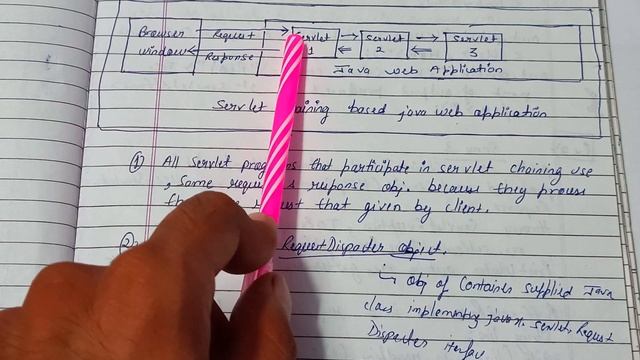 Browser Request servlet servlet servlet
window Response 1 2 3
Java web Application
Servlet aining based java web application
① All Servlet prog s that participate in servlet chaining use
, Same reque s response obj. because they process
that given by client.
② RequestDispacter object.
↳ obj of Container supplied Java
class implementing javax. servlet. Request
Dispacter